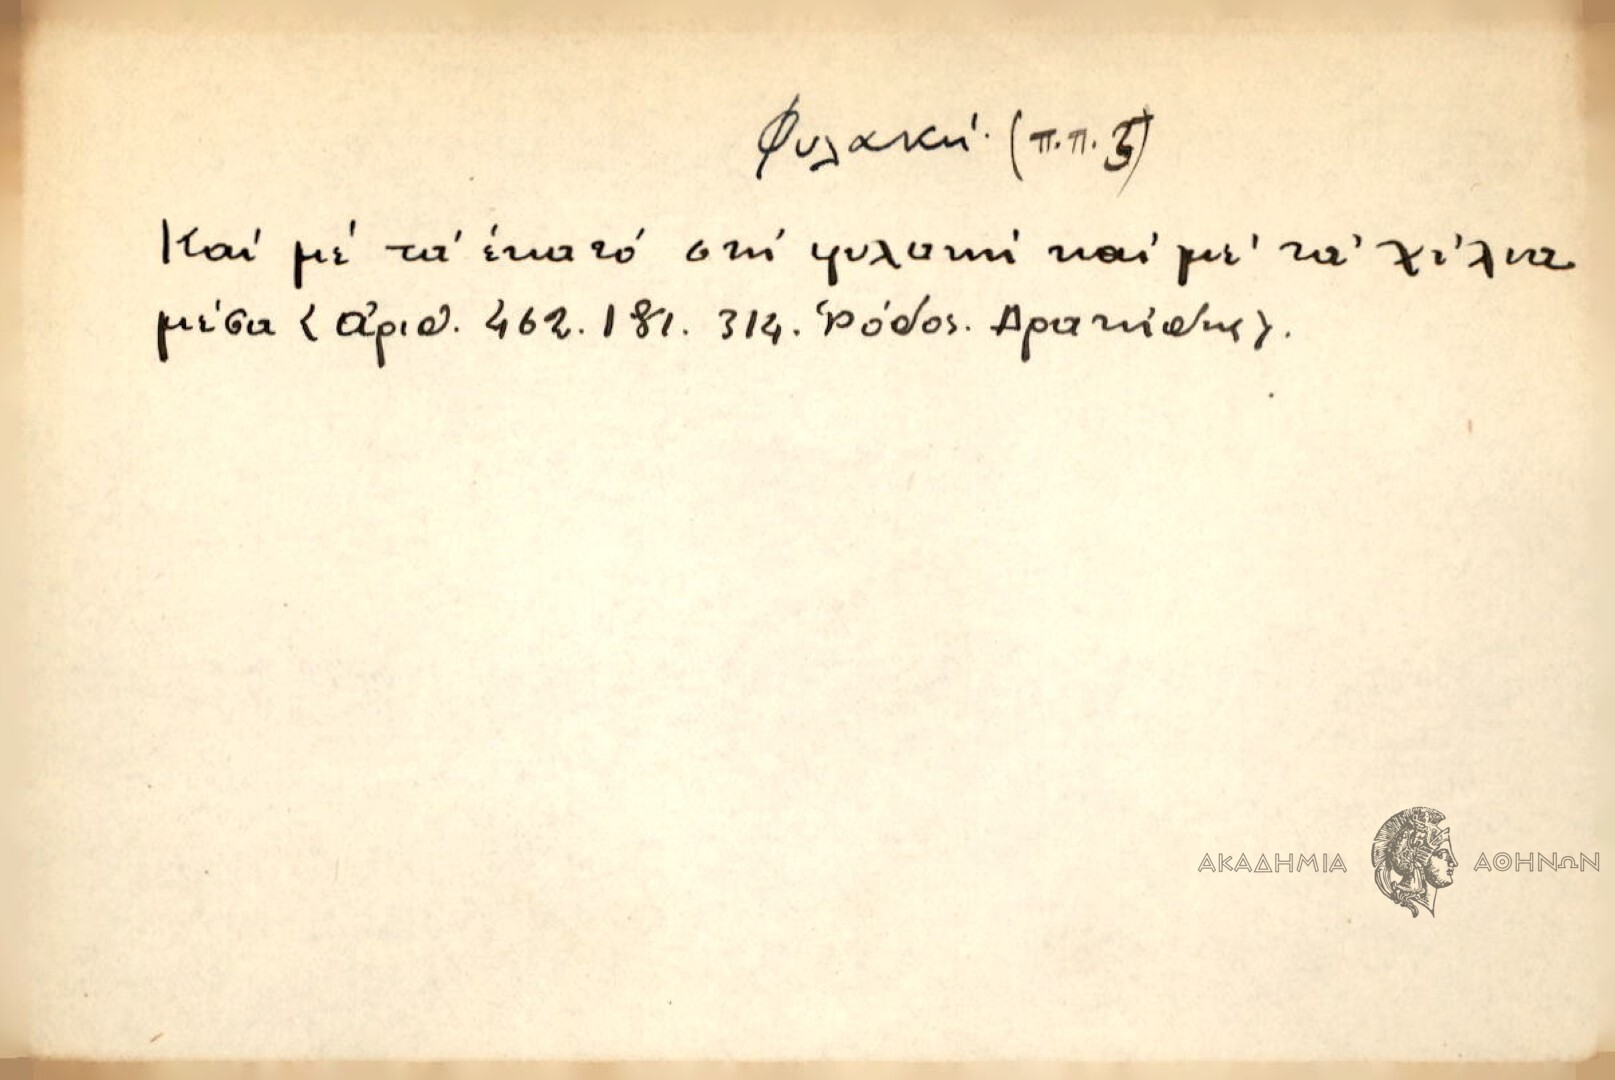 Φυλακή. (π.π. 5)
Καί μέ τά ἑκατό στή φυλακή καί μέ τά χίλια
μέσα < ἀριθ. 462. 181. 314. Ῥόδος. Δρακίδης >.
ΑΚΑΔΗΜΙΑ ΑΘΗΝΩΝ